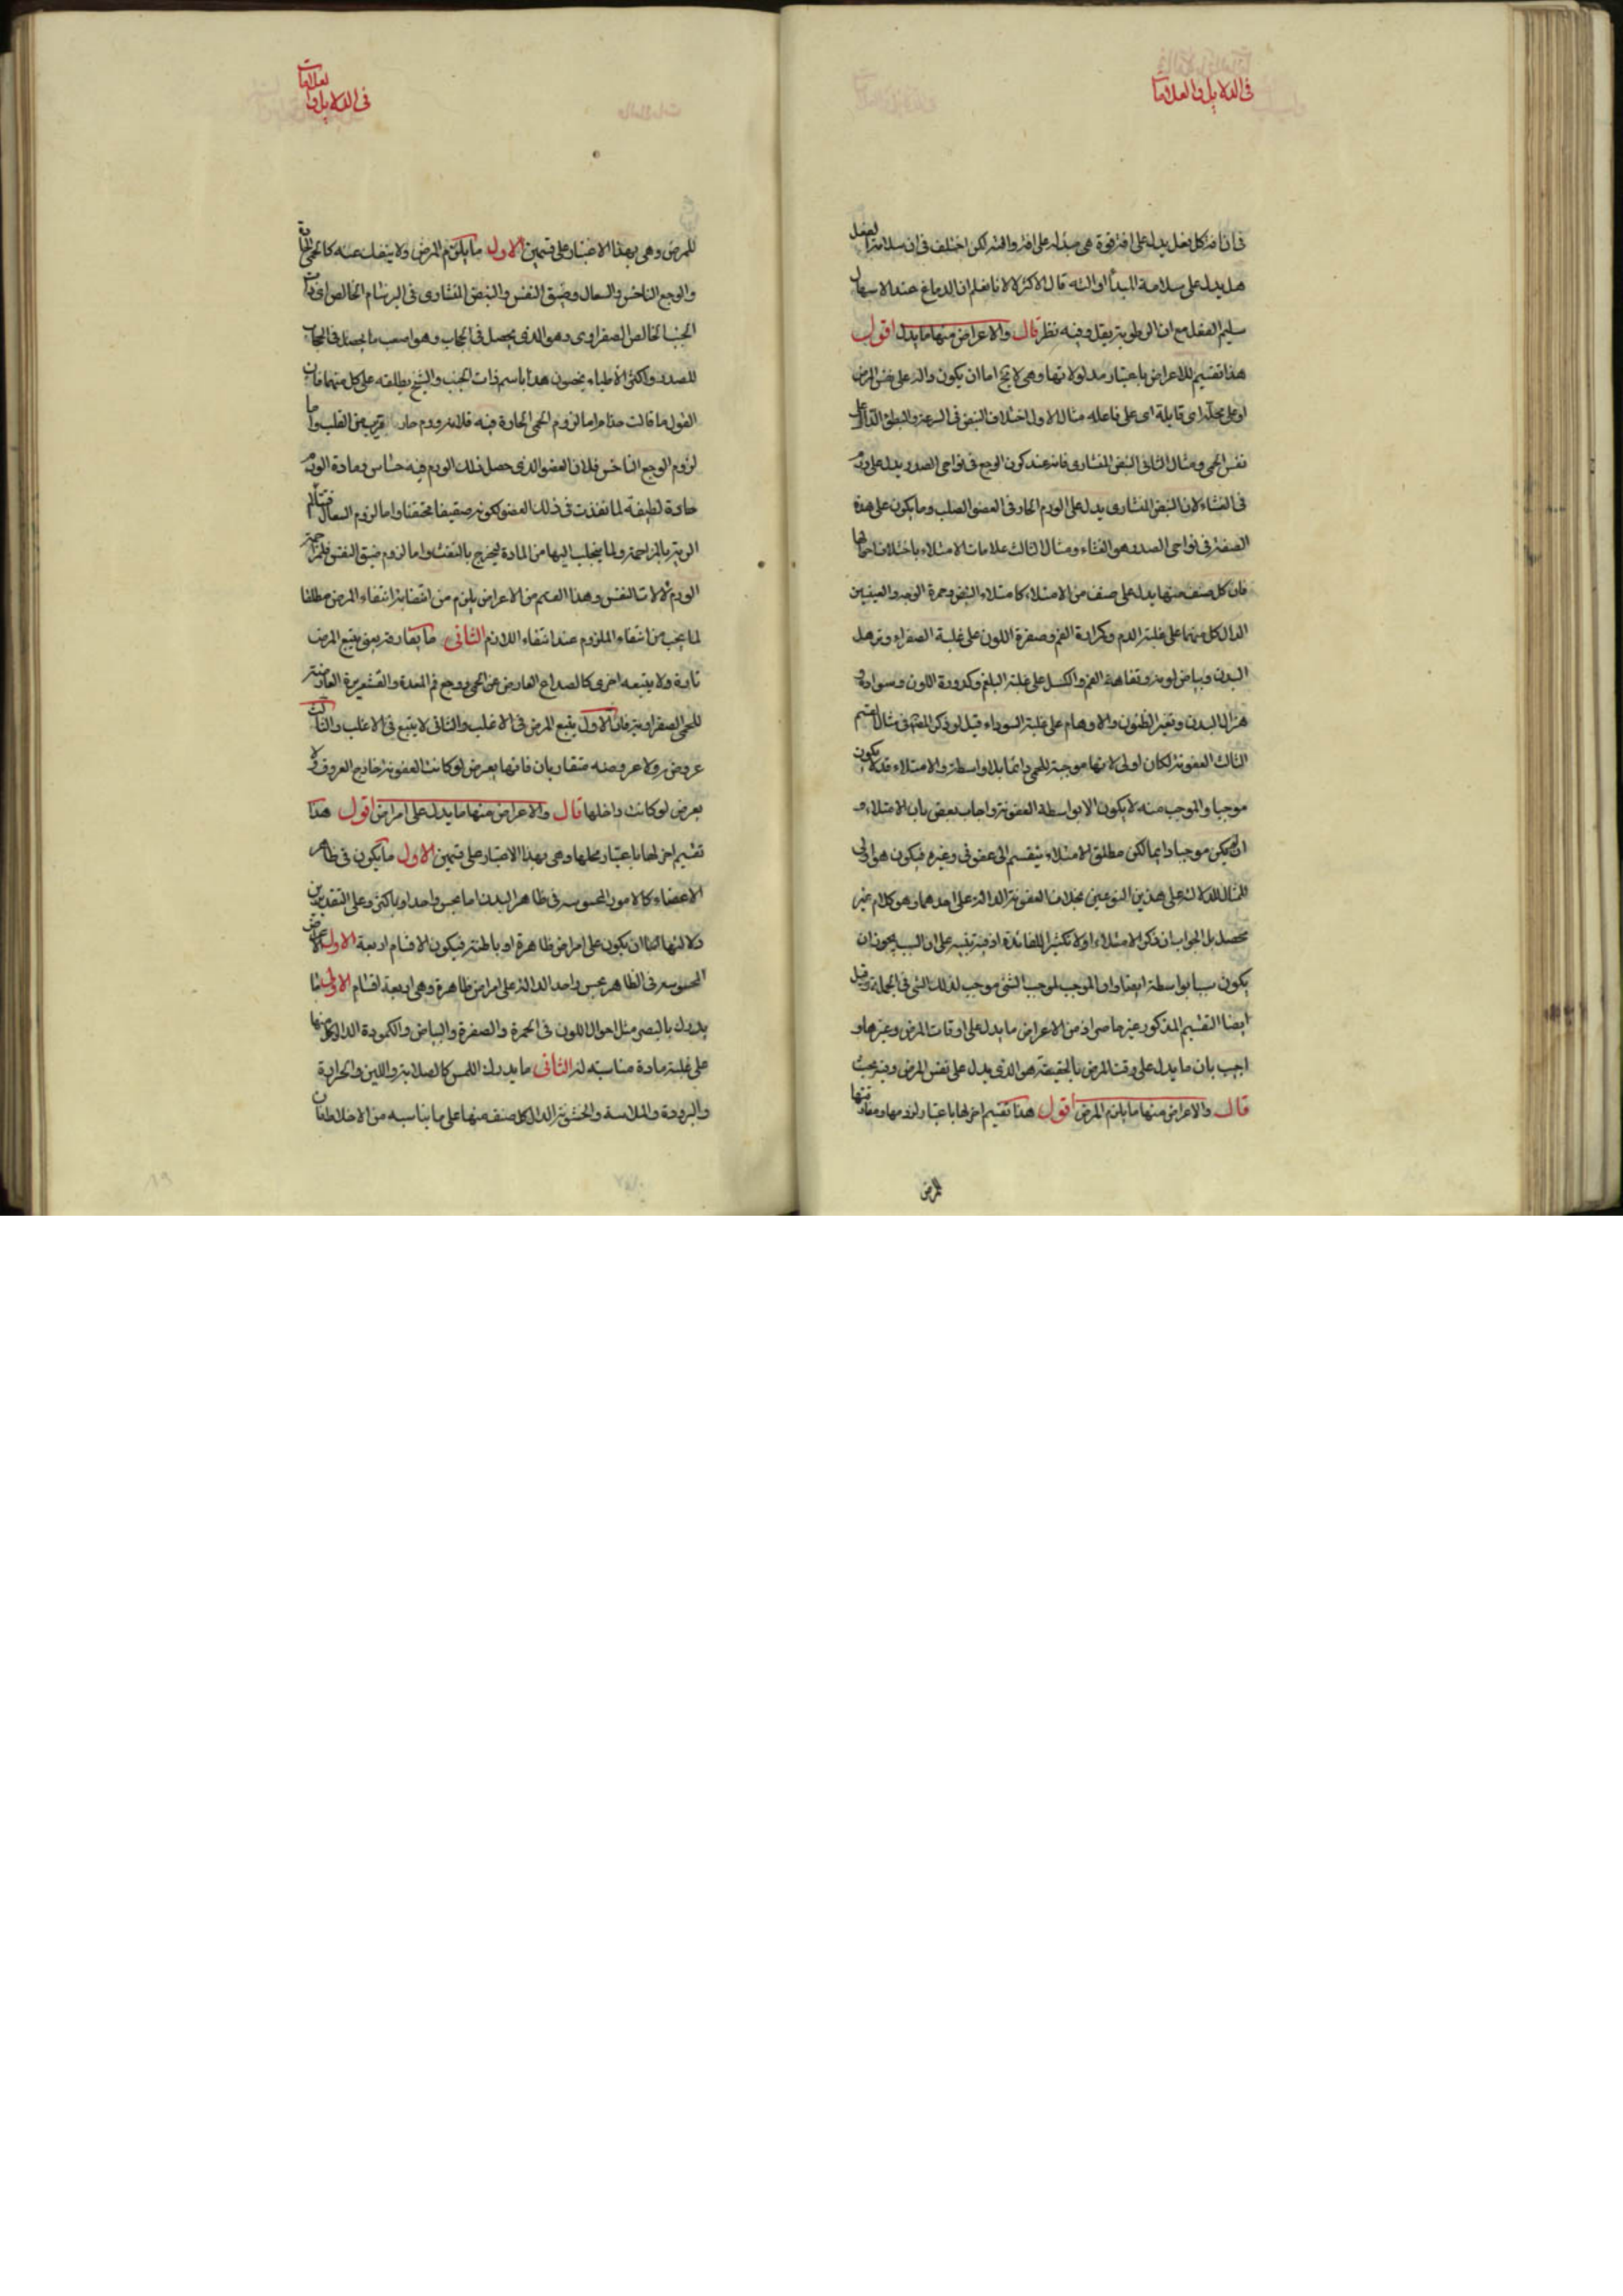 فى الدلايل والعلامات
فان افة كل فعل يدل على افة قوة هى مبدأه على افة والته لكن اختلف فى ان سلامة الفعل
هل يدل على سلامة المبدأ او الته قال الاكثر لا لانا نعلم ان الدماغ عند الاسهال
سليم الفعل مع ان الرطوبة يقل وفيه نظر قال والاعراض منها ما يدل اقول
هذا تقسيم للاعراض باعتبار مدلولاتها وهى لا يخ اما ان يكون دالة على نفس المرض
او على محله اى قابله اى على فاعله مثال الاول اختلاف النبض فى السرعة والبطئ الدال على
نفس الحمى ومثال الثانى النبض المنشارى فانه عند كون الوجع فى نواحى الصدر يدل على ورم
فى الغشاء لان النبض المنشارى يدل على الورم الحار فى العضو الصلب وما يكون على هذه
الصفة فى نواحى الصدر هو الغشاء ومثال الثالث علامات الامتلاء باختلاف احوالها
فان كل صنف منها يدل على صنف من الامتلاء كامتلاء النبض وحمرة الوجه والعينين
الدال كل منهما على غلبة الدم وكمرارة الفم وصفرة اللون على غلبة الصفراء وترهل
البدن وبياض لونه وتفاهة الفم والكسل على غلبة البلغم وكدورة اللون وسواده و
هزال البدن وتغير الظنون والاوهام على غلبة السوداء قيل لو ذكر المص فى مثال القسم
الثالث العفونة لكان اولى لانها موجبة للحمى دائما بلا واسطة والامتلاء قد لا يكون
موجبا والموجب منه لا يكون الا بواسطة العفونة واجاب بعض بان الامتلاء و
ان لم يكن موجبا دايما لكن مطلق الامتلاء ينقسم الى عفونى وغيره فيكون هو اولى
للمثال للدلالة على هذين النوعين بخلاف العفونة الدالة على احدهما وهو كلام غير
محصل بل الجواب ان ذكر الامتلاء اولا تكثيرا للفائدة اذ فيه تنبيه على ان السبب يجوز ان
يكون سببا بواسطة ايضا وان الموجب لموجب الشئ موجب لذلك الشئ فى الجملة وقيل
ايضا التقسيم المذكور غير حاصر اذ من الاعراض ما يدل على اوقات المرض وغيرها و
اجيب بان ما يدل على وقت المرض بالحقيقة هو الذى يدل على نفس المرض وفيه بحث
قال والاعراض منها ما يلزم المرض اقول هذا تقسيم اخر لها باعتبار لزومها ومفارقتها
للمرض
فى الدلايل والعلامات
للمرض وهى بهذا الاعتبار على قسمين الاول ما يلزم المرض ولا ينفك عنه كالحمى الحارة
والوجع الناخس والسعال وضيق النفس والنبض المنشارى فى البرسام الخالص اى ذات
الجنب الخالص الصفراوى وهو الذى يحصل فى الحجاب وهو اصعب ما يحصل فى الحجاب
للصدر واكثر الاطباء يخصون هذا باسم ذات الجنب والشيخ يطلقه على كل منهما فان
القول ما قالت حذام اما لزوم الحمى الحادة فيه فلانه ورم حار قريب من القلب واما
لزوم الوجع الناخس فلان العضو الذى حصل فذلك الورم فيه حساس ومادة الورم
حادة لطيفة لما نفذت فى ذلك العضو لكونه صفيقا محتقنا واما لزوم السعال فتتألم
الرية بالمزاحمة ولما ينجلب اليها من المادة ليخرج بالنفث واما لزوم ضيق النفس فلمزاحمة
الورم لآلات النفس وهذا القسم من الاعراض يلزم من انقضائه انتفاء المرض مطلقا
لما يجب من انتفاء الملزوم عند انتفاء اللازم الثانى ما يفارقه يعنى يتبع المرض
تارة ولا يتبعه اخرى كالصداع العارض عن الحمى ووجع فم المعدة والقشعريرة العارضة
للحمى الصفراوية فان الاول يتبع المرض فى الاغلب والثانى لا يتبع فى الاغلب والثالث
عروضه ولا عروضه متقاربان فانها يعرض لو كانت العفونة خارج العروق ولا
يعرض لو كانت داخلها قال والاعراض منها ما يدل على امراض اقول هذا
تقسيم اخر لها باعتبار محلها وهى بهذا الاعتبار على قسمين الاول ما يكون فى ظاهر
الاعضاء كالامور المحسوسة فى ظاهر البدن اما بحس واحد او باكثر وعلى التقديرين
دلالتها اما ان يكون على امراض ظاهرة او باطنة فيكون الاقسام اربعة الاول الاعراض
المحسوسة فى الظاهر بحس واحد الدالة على امراض ظاهرة وهى اربعة اقسام الاول ما
يدرك بالبصر مثل احوال اللون فى الحمرة والصفرة والبياض والكمودة الدال كل منها
على غلبة مادة مناسبة له الثانى ما يدرك اللمس كالصلابة واللين والحرارة
والبرودة والملاسة والخشونة الدال كل صنف منها على ما يناسبه من الاخلاط فان